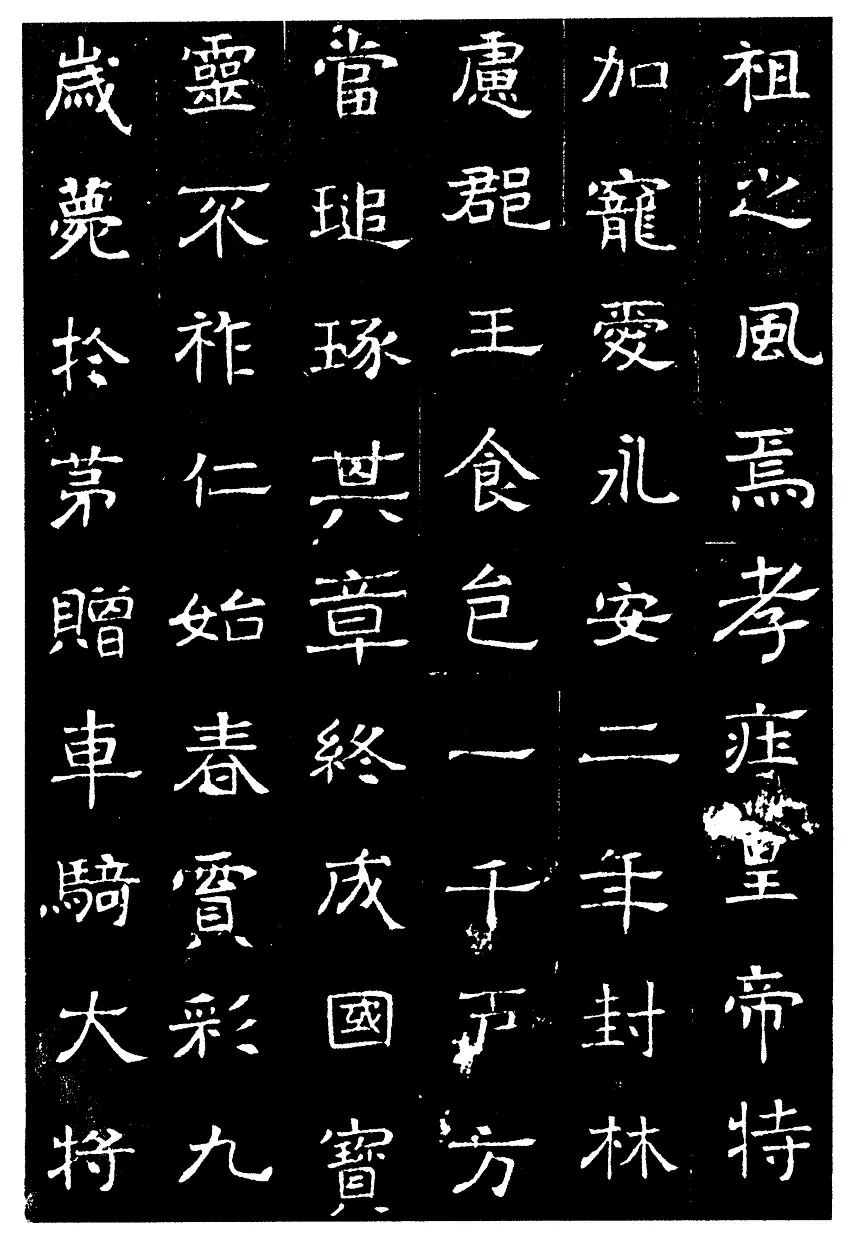 祖之風焉孝莊皇帝特
加寵愛永安二年封林
慮郡王食邑一千戶方
當瑥琢其章終成國寶
靈不祚仁始春賈彩九
歲薨於苐贈車騎大將